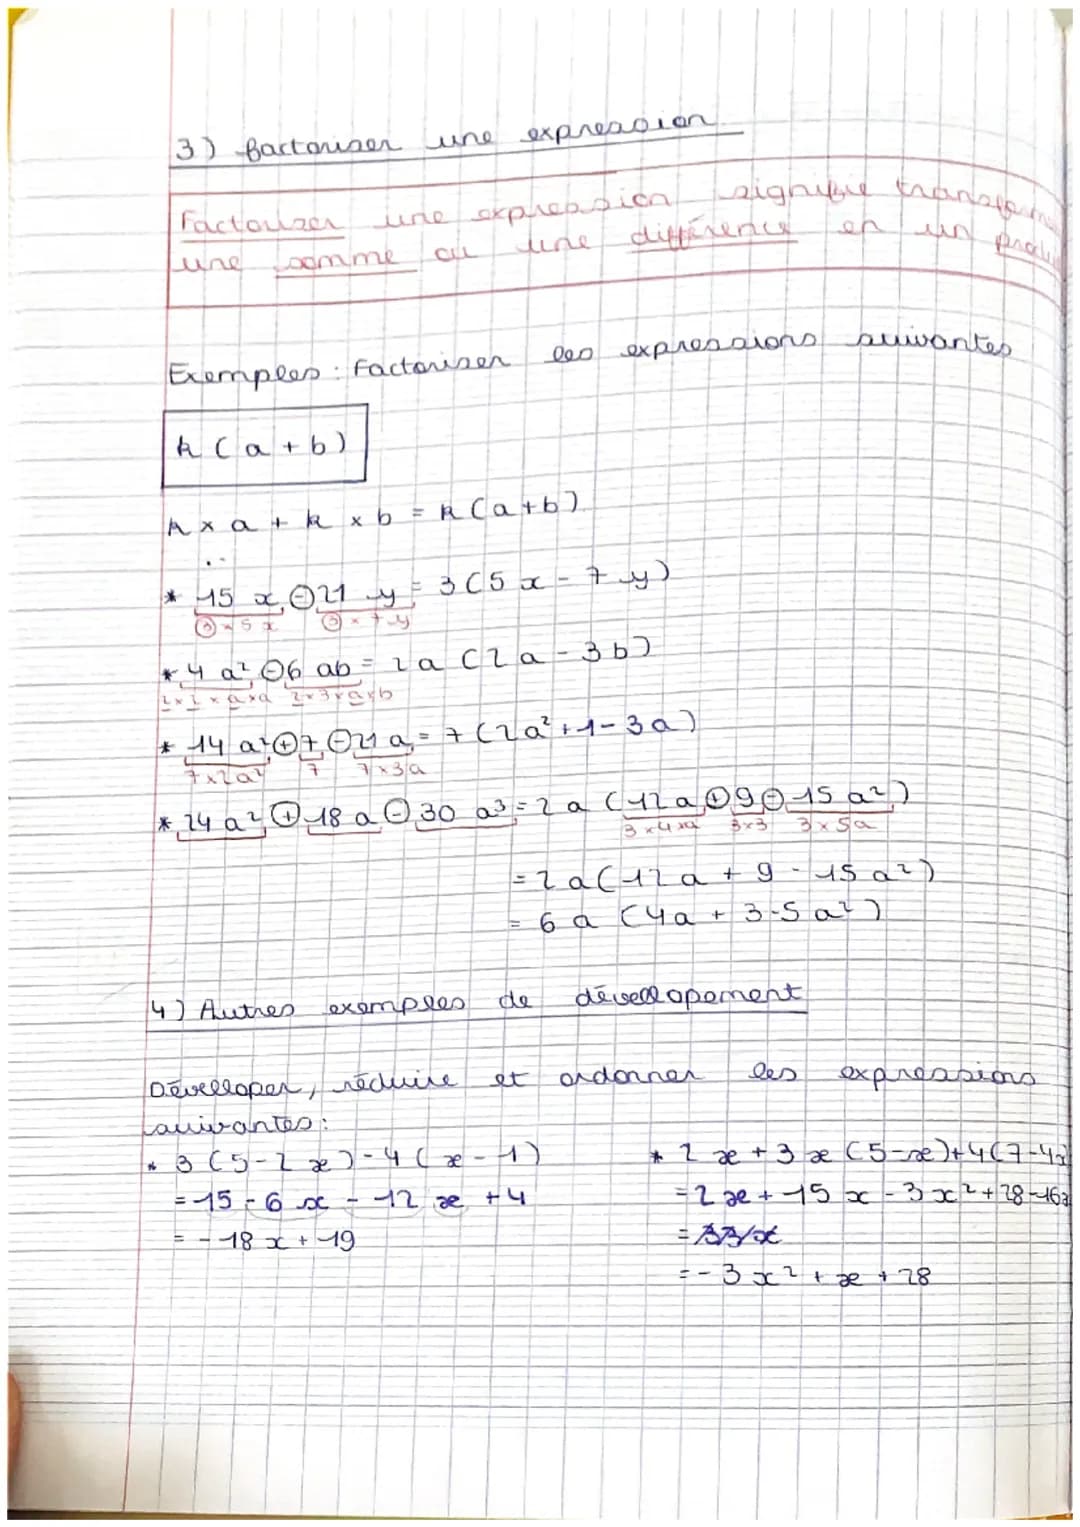 3) factoriser une expression
Factoriser une expression signifie transforme
une somme ou une différence en un produ
Exemples : Factoriser les expressions suivantes
k (a + b)
k × a + k × b = k (a+b)
* 15 x ⊖ 21 y = 3 (5 x - 7 y)
3 × 5 x 3 × 7 y
* 4 a² ⊖ 6 ab = 2 a (2 a - 3 b)
2 × 2 × a × a 2 × 3 × a × b
* 14 a² ⊕ 7 ⊖ 21 a = 7 (2 a² + 1 - 3 a)
7 × 2 a² 7 7 × 3 a
* 24 a² ⊕ 18 a ⊖ 30 a³ = 2 a (12 a ⊕ 9 ⊖ 15 a²)
3 × 4 × a 3×3 3 × 5 a
= 2 a (12 a + 9 - 15 a²)
= 6 a (4a + 3 - 5 a²)
4) Autres exemples de dévellopement
Dévelloper, réduire et ordonner les expressions
suivantes :
* 3 (5 - 2 x) - 4 ( x - 1)
= 15 - 6 x - 12 x + 4
= - 18 x + 19
* 2 x + 3 x (5 - x) + 4 (7 - 4x
= 2 x + 15 x - 3 x² + 28 - 16x
= - 3 x² + x + 28